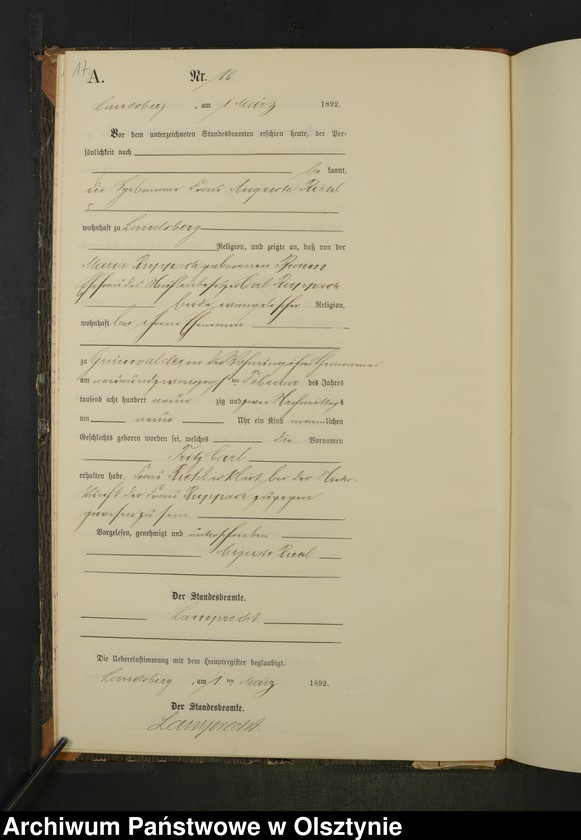 17
A.
Nr. 16
Landsberg, am 1 März 1892.
Vor dem unterzeichneten Standesbeamten erschien heute, der Per-
sönlichkeit nach
be kannt,
die Hebamme Frau Auguste Riehl
wohnhaft zu Landsberg
Religion, und zeigte an, daß von der
Maria Ruppach geborenen
Ehefrau des Ruppach
beide evangelischer Religion,
wohnhaft bei ihrem Ehemann
zu Grünwalde in der Wohnung ihres Ehemannes
am neunundzwanzigsten Februar des Jahres
tausend acht hundert neun zig und zwei Nachmittags
um neun Uhr ein Kind männlichen
Geschlechts geboren worden sei, welches die Vornamen
Fritz Carl
erhalten habe. Frau Riehl erklärt, bei der Nieder-
kunft der Frau Ruppach zugegen
gewesen zu sein
Vorgelesen, genehmigt und unterschrieben
Auguste Riehl
Der Standesbeamte.
Lamprecht
Die Uebereinstimmung mit dem Hauptregister beglaubigt.
Landsberg, am 1ten März 1892.
Der Standesbeamte.
Lamprecht
Archiwum Państwowe w Olsztynie